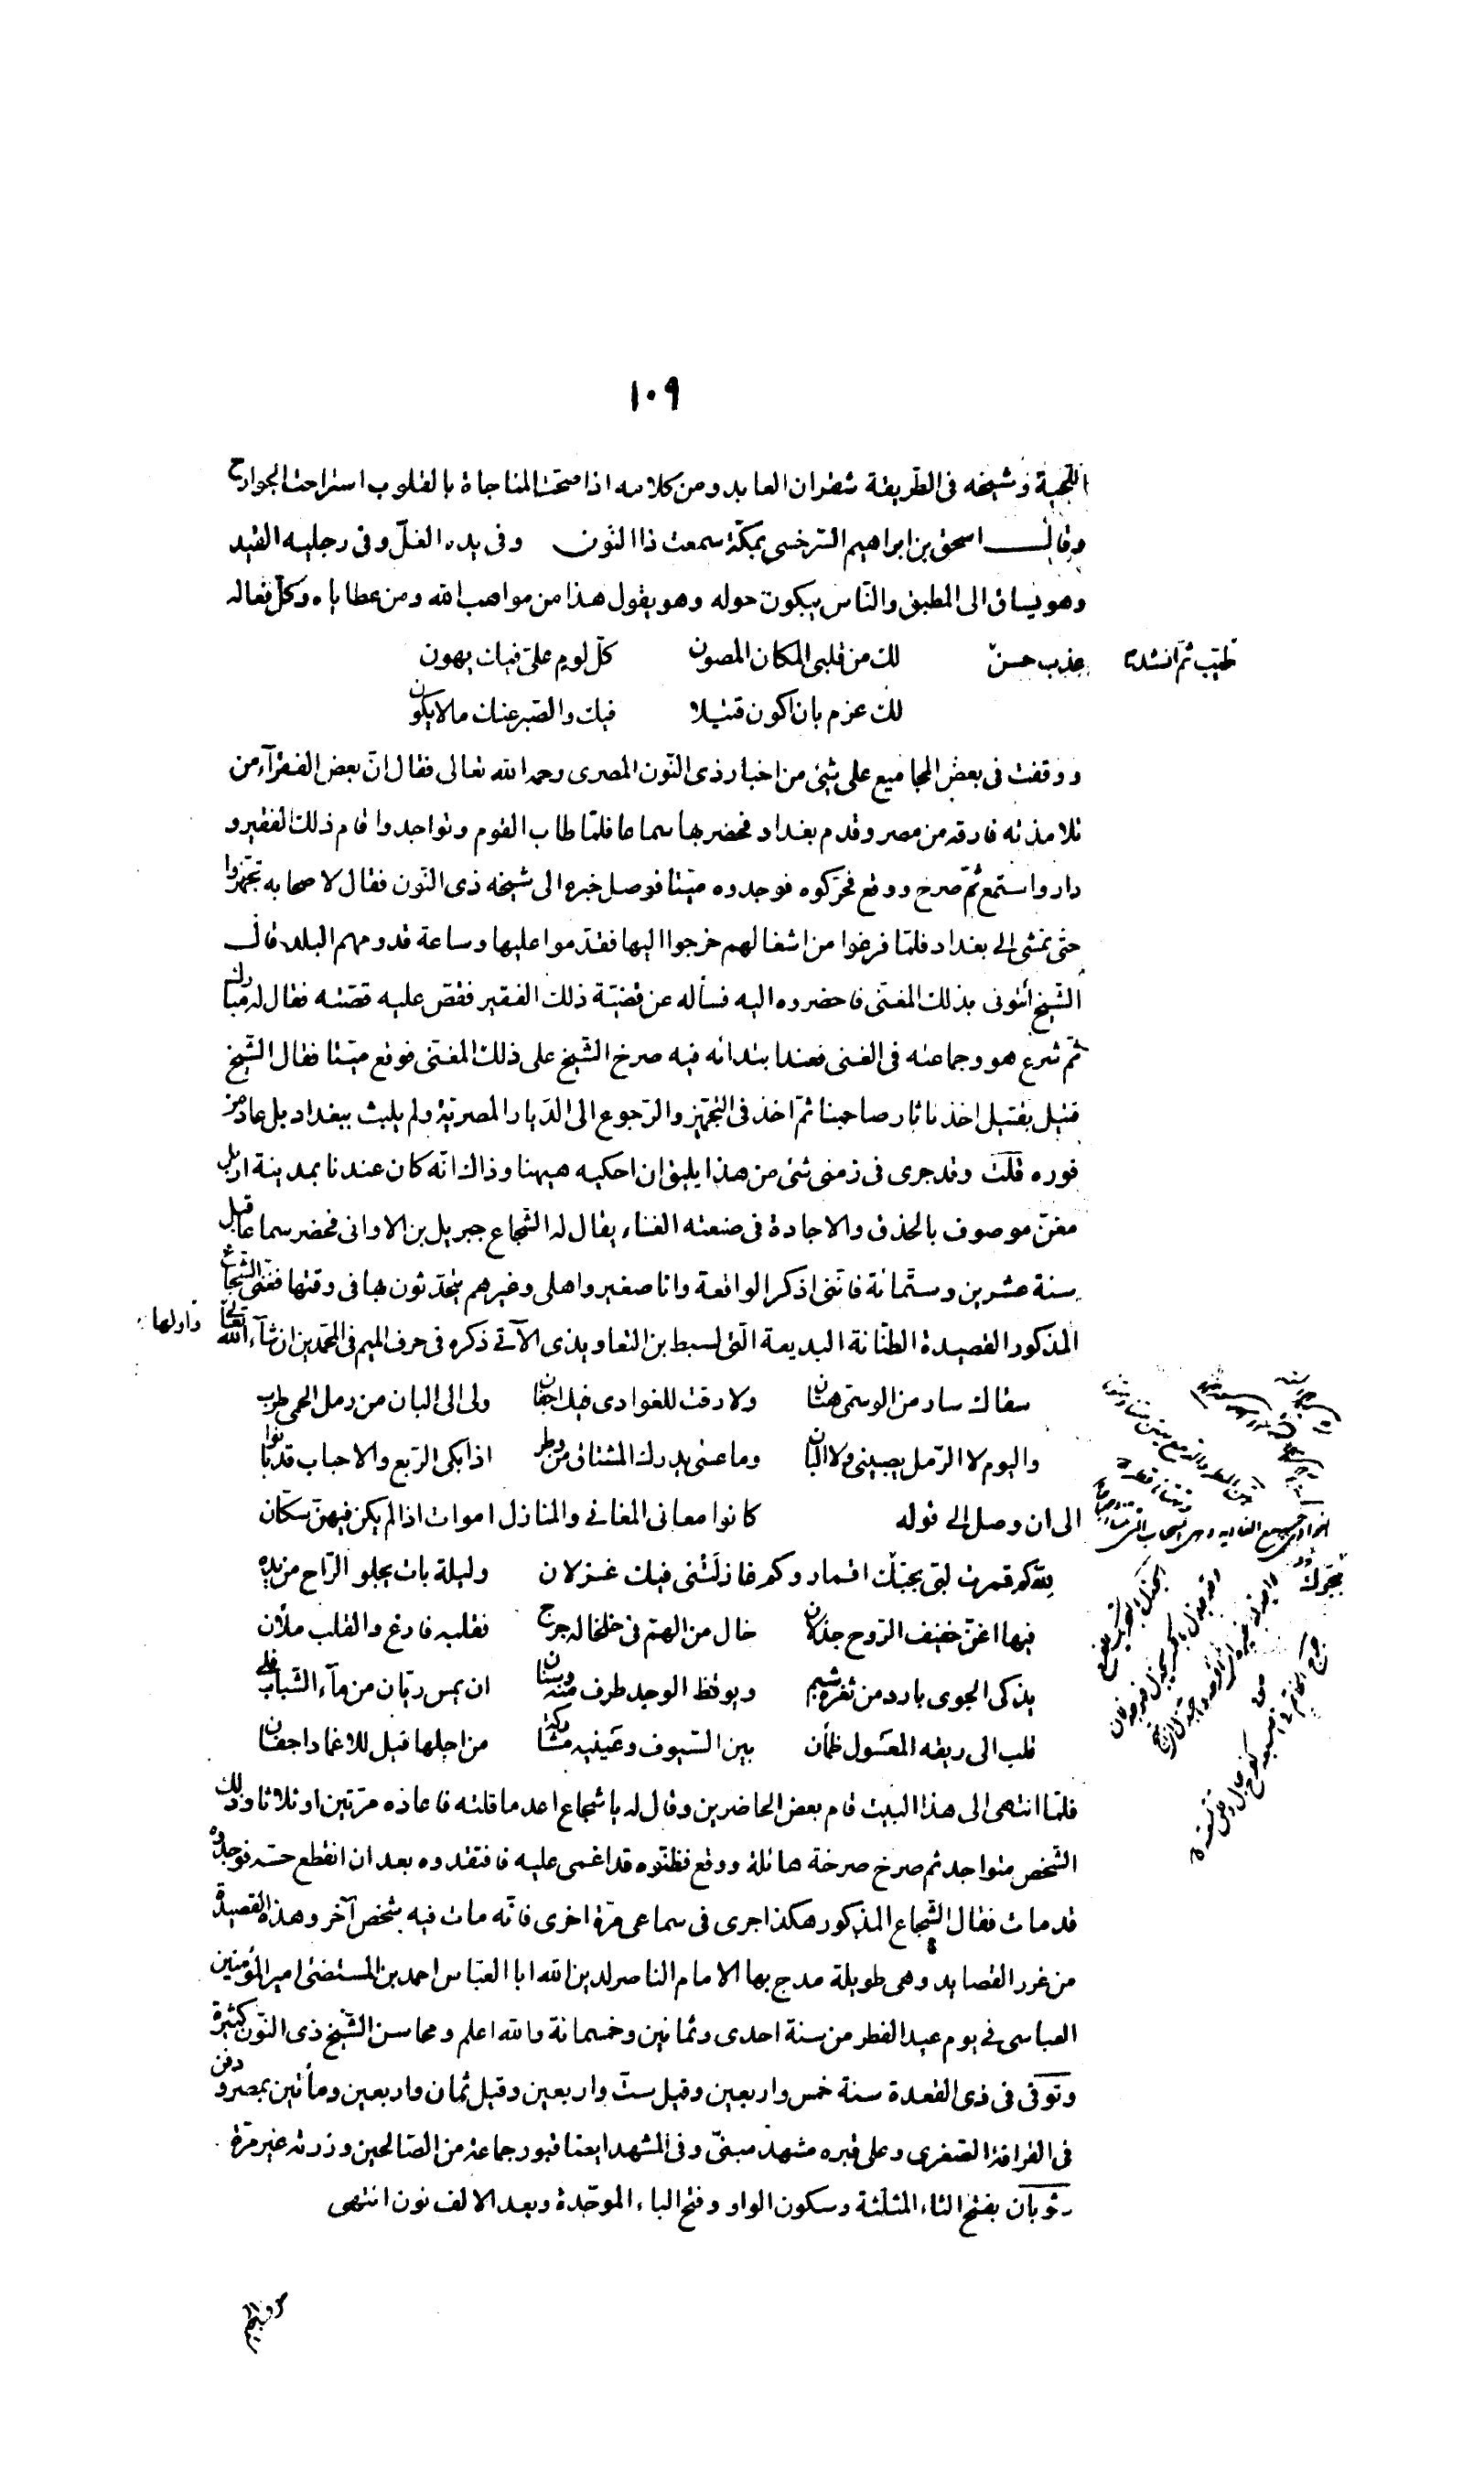 ١٠٩
اللحية وشيخه فى الطريقة شقران العابد ومن كلامه اذا صحّت المناجاة بالقلوب استراحت الجوارح
وقال اسحق بن ابراهيم السّرخسى بمكّة سمعت ذا النّون وفى يده الغلّ وفى رجليه القيد
وهو يساق الى المطبق والنّاس يبكون حوله وهو يقول هذا من مواهب الله ومن عطاياه وكلّ فعاله
عذب حسن طيّب ثمّ انشد لك من قلبى المكان المصون كلّ لوم علىّ فيك يهون
لك عزم بان اكون قتيلا فيك والصّبر عنك ما لا يكون
ووقفت فى بعض المجاميع على شئ من اخبار ذى النّون المصرى رحمه الله تعالى فقال انّ بعض الفقرآء من
تلامذته فارقه من مصر وقدم بغداد فحضر بها سماعا فلمّا طاب القوم وتواجدوا قام ذلك الفقير و
دار واستمع ثمّ صرخ ووقع فحرّكوه فوجدوه ميّتا فوصل خبره الى شيخه ذى النّون فقال لاصحابه تجهّزوا
حتى نمشى الى بغداد فلمّا فرغوا من اشغالهم خرجوا اليها فقدّموا عليها وساعة قدومهم البلد قال
الشّيخ أئتونى بذلك المغنّى فاحضروه اليه فسأله عن قضيّة ذلك الفقير فقصّ عليه قصّته فقال له مبارك
ثمّ شرع هو وجماعته فى الغنى فعند ابتدائه فيه صرخ الشّيخ على ذلك المغنّى فوقع ميّتا فقال الشّيخ
قتيل بقتيل اخذنا ثار صاحبنا ثمّ اخذ فى التّجهّز والرّجوع الى الدّيار المصريّة ولم يلبث ببغداد بل عاد من
فوره قلت وقد جرى فى زمنى شئ من هذا يليق ان احكيه هيهنا وذاك انّه كان عندنا بمدينة اربل
مغنّ موصوف بالحذق والاجادة فى صنعته الغناء يقال له الشّجاع جبريل بن الاوانى فحضر سماعا قبل
سنة عشرين وستّمائة فانّنى اذكر الواقعة وانا صغير واهلى وغيرهم يتحدّثون بها فى وقتها فغنّى الشّجاع
المذكور القصيدة الطنّانة البديعة الّتى لسبط بن التعاويذى الآتى ذكره فى حرف الميم فى المحمّدين ان شآء الله تعالى واولها
سقاك سار من الوسمى هتان ولا رقت للغوادى فيك اجفان ولى الى البان من رمل الحمى طرب
واليوم لا الرّمل يصبينى ولا البان وما عسى يدرك المشتاق من وطر اذا بكى الرّبع والاحباب قد بانوا
الى ان وصل الى قوله كانوا معانى المغانى والمنازل اموات اذا لم يكن فيهنّ سكّان
لله كم قمرت لبّى بجوّك اقمار وكم غازلتنى فيك غزلان وليلة بات يجلو الرّاح من يده
فيها اغنّ خفيف الرّوح جذلان خال من الهمّ فى خلخاله حرج فقلبه فارغ والقلب ملآن
يذكى الجوى بارد من ثغره شبم ويوقظ الوجد طرف منه وسنان ان يمس ريّان من مآء الشّباب فلى
قلب الى ريقه المعسول ظمأن بين السّيوف وعينيه مشاركة من اجلها قيل للاغماد اجفان
فلمّا انتهى الى هذا البيت قام بعض الحاضرين وقال له يا شجاع اعد ما قلته فاعاده مرّتين او ثلاثا وذلك
الشّخص متواجد ثم صرخ صرخة هائلة ووقع فظنّوه قد اغمى عليه فافتقدوه بعد ان انقطع حسّه فوجدوه
قد مات فقال الشّجاع المذكور هكذا جرى فى سماعى مرّة اخرى فانّه مات فيه شخص آخر وهذه القصيدة
من غرر القصايد وهى طويلة مدح بها الامام الناصر لدين الله ابا العبّاس احمد بن المستضئ امير المؤمنين
العباسى فى يوم عيد الفطر من سنة احدى وثمانين وخمسمائة والله اعلم ومحاسن الشّيخ ذى النّون كثيرة
وتوّفى فى ذى القعدة سنة خمس واربعين وقيل ستّ واربعين وقيل ثمان واربعين ومأتين بمصر ودفن
فى القرافة الصّغرى وعلى قبره مشهد مبنىّ وفى المشهد ايضا قبور جماعة من الصّالحين وزرته غير مرّة
وثوبان بفتح الثاء المثلّثة وسكون الواو وفتح الباء الموحّدة وبعد الالف نون انتهى